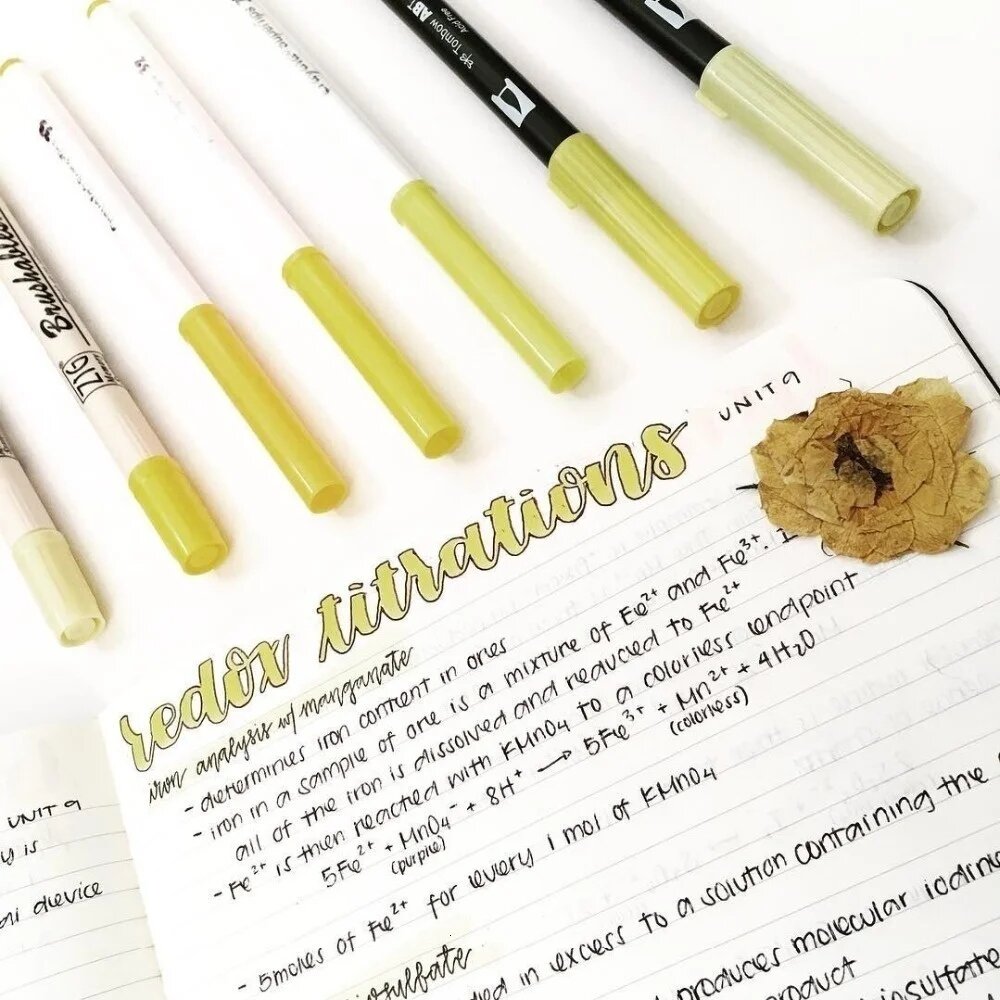 Tombow ABT
Acid Free
ZIG Brushables
UNIT 9
redox titrations
iron analysis w/ manganate
- determines iron content in ores
- iron in a sample of ore is a mixture of Fe²⁺ and Fe³⁺.
all of the iron is dissolved and reduced to Fe²⁺
- Fe²⁺ is then reacted with KMnO4 to a colorless endpoint
5Fe²⁺ + MnO₄⁻ + 8H⁺ → 5Fe³⁺ + Mn²⁺ + 4H₂O
(purple) (colorless)
- 5moles of Fe²⁺ for every 1 mol of KMnO4
in excess to a solution containing the
produces molecular iodine
product
UNIT 9
is
device